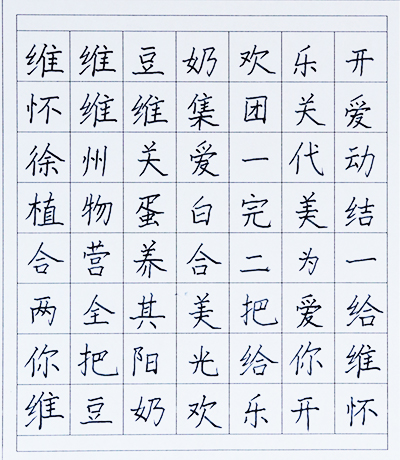 维维豆奶欢乐开
怀维维集团关爱
徐州关爱一代动
植物蛋白完美结
合营养合二为一
两全其美把爱给
你把阳光给你维
维豆奶欢乐开怀